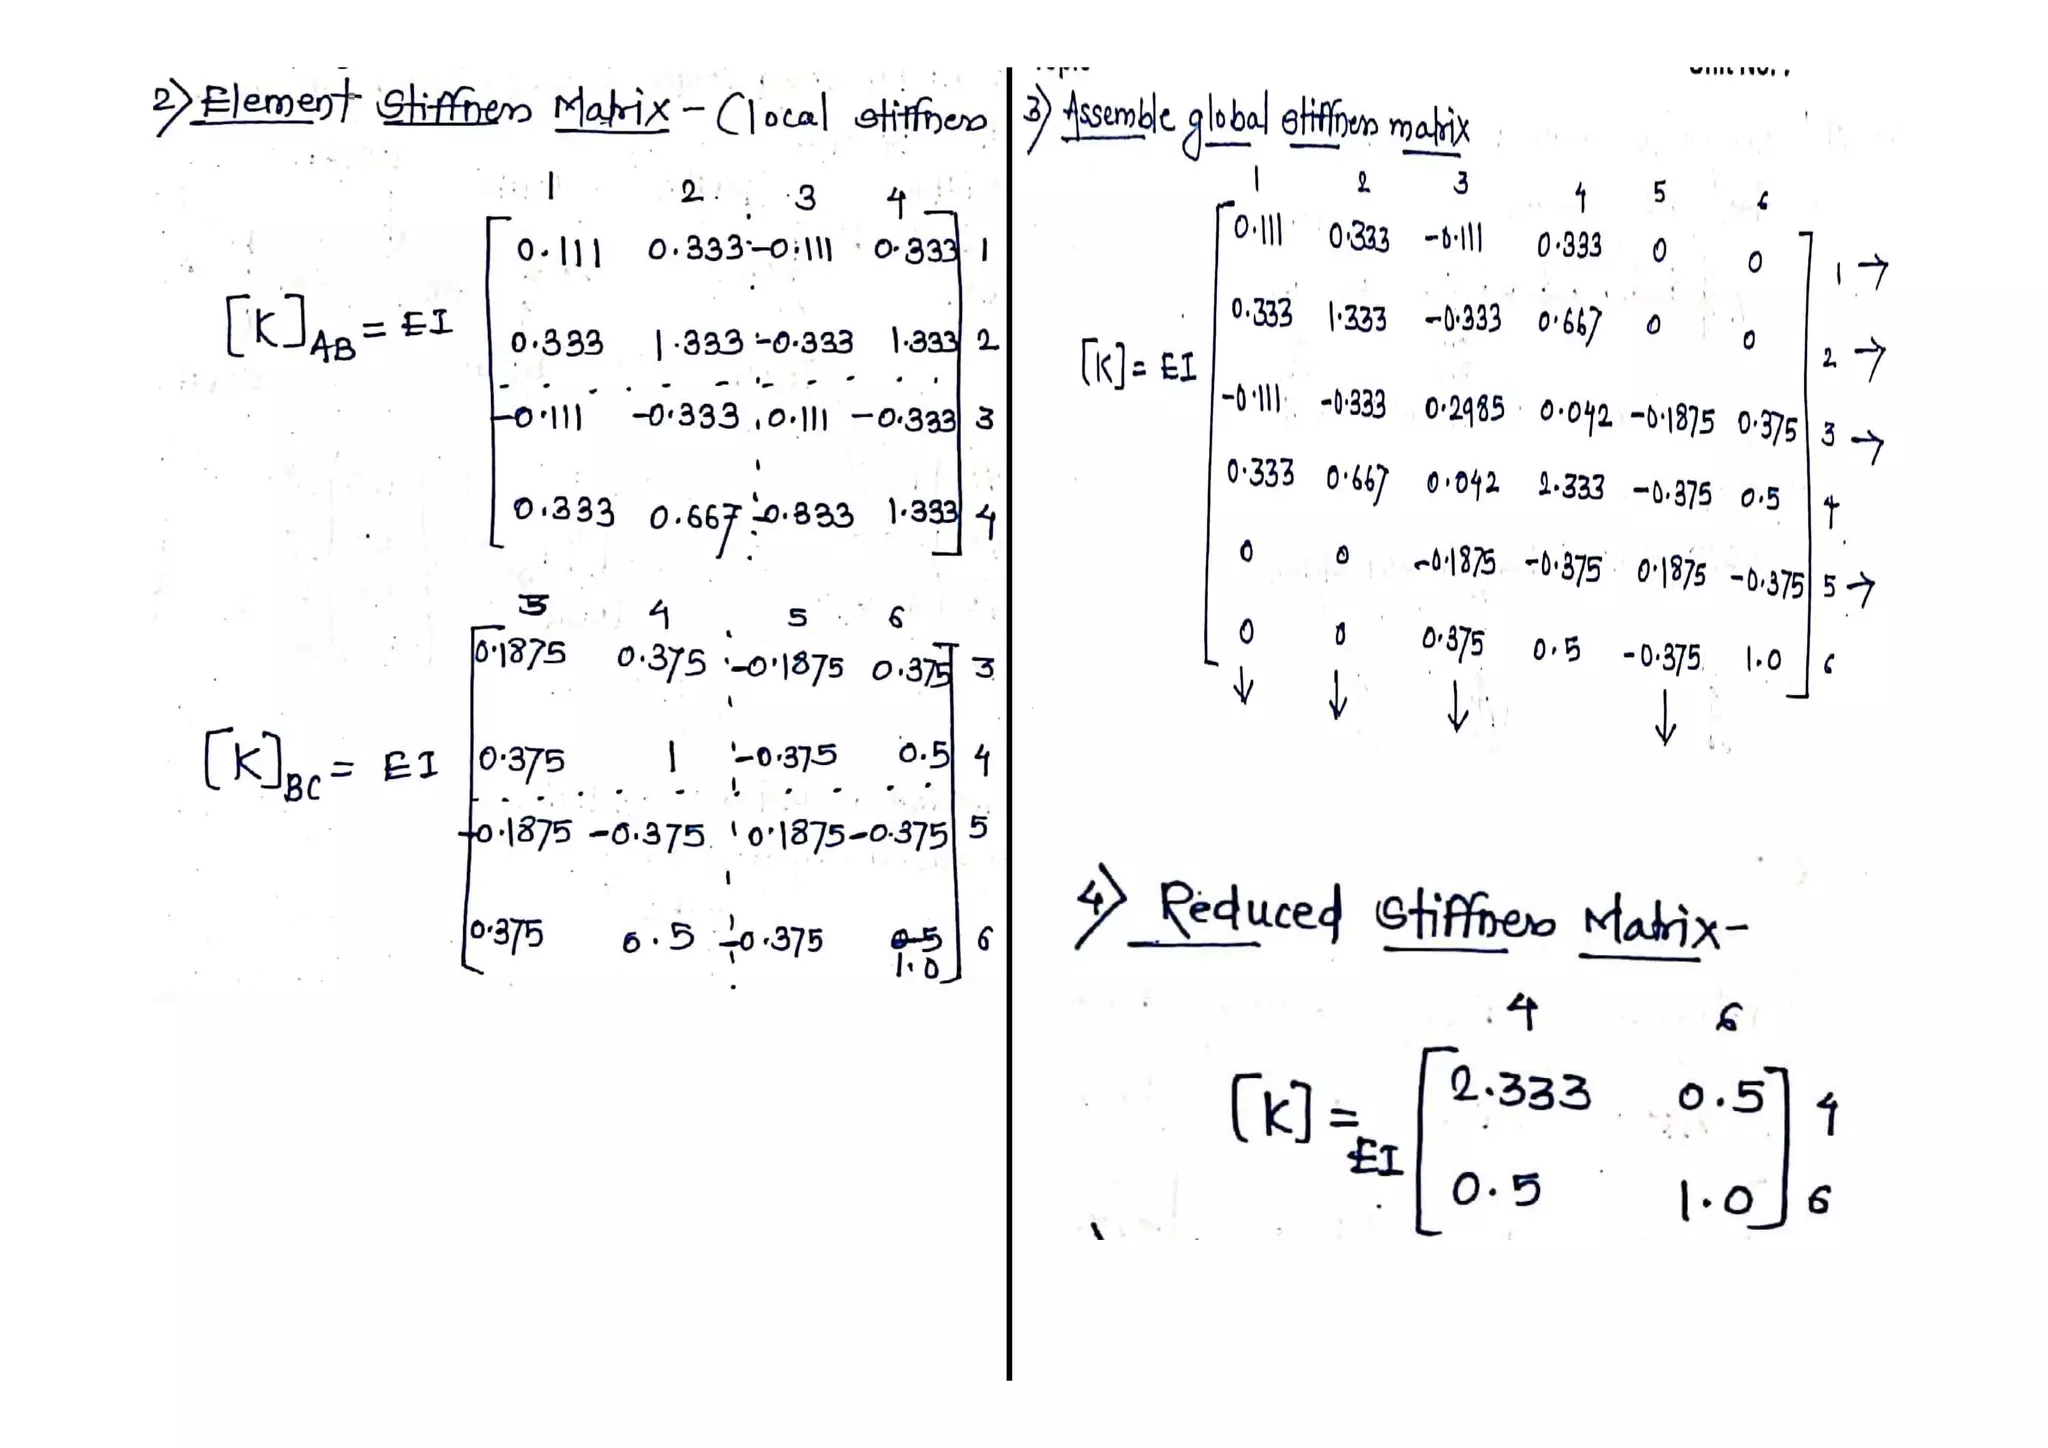 2) Element Stiffness Matrix - (local stiffness
1 2 3 4
0.111 0.333 -0.111 0.333 1
[K]AB = EI
0.333 1.333 -0.333 1.333 2
-0.111 -0.333 0.111 -0.333 3
0.333 0.667 -0.333 1.333 4
3 4 5 6
0.1875 0.375 -0.1875 0.375 3
[K]BC = EI 0.375 1 -0.375 0.5 4
-0.1875 -0.375 0.1875 -0.375 5
0.375 0.5 -0.375 0.5 6
1.0
3) Assemble global stiffness matrix
1 2 3 4 5 6
0.111 0.333 -0.111 0.333 0 0 1 →
0.333 1.333 -0.333 0.667 0 0 2 →
[K] = EI
-0.111 -0.333 0.2985 0.042 -0.1875 0.375 3 →
0.333 0.667 0.042 2.333 -0.375 0.5 4
0 0 -0.1875 -0.375 0.1875 -0.375 5 →
0 0 0.375 0.5 -0.375 1.0 6
↓ ↓ ↓ ↓
4) Reduced Stiffness Matrix-
4 6
2.333 0.5 4
[K] = EI
0.5 1.0 6